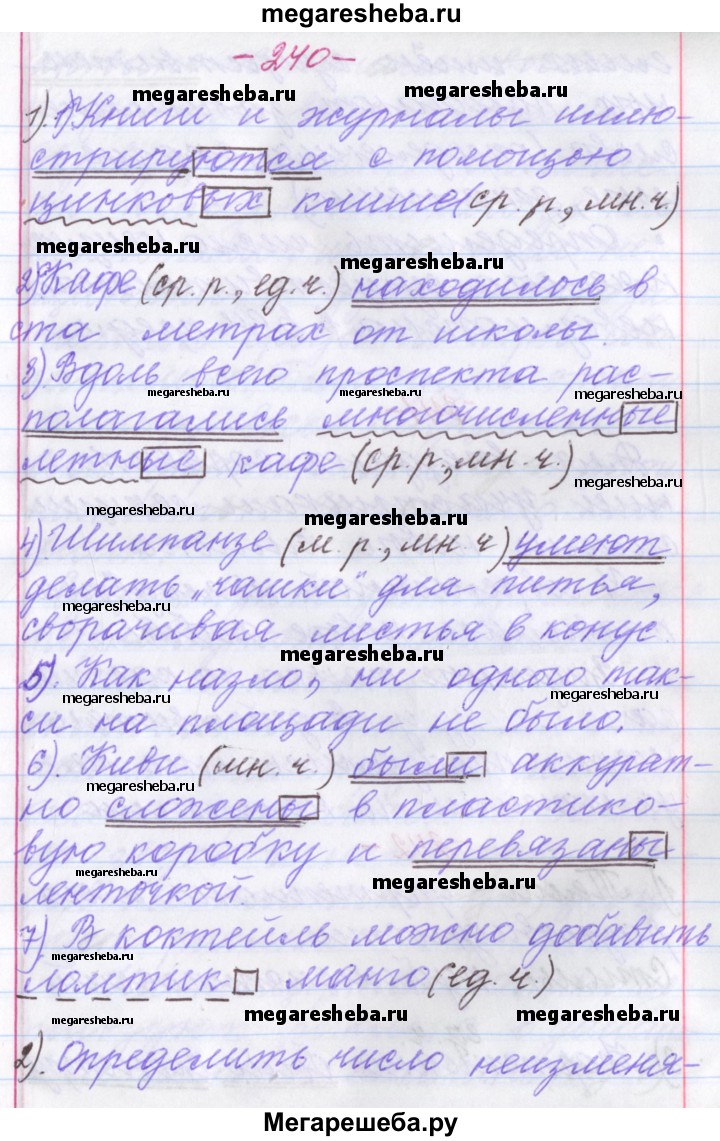 megaresheba.ru
- 240 -
megaresheba.ru
megaresheba.ru
1). 1) Книги и журналы иллю-
стрируются с помощью
цинковых клише (ср. р., мн. ч.)
megaresheba.ru
megaresheba.ru
2) Кафе (ср. р., ед. ч.) находилось в
ста метрах от школы.
3) Вдоль всего проспекта рас-
megaresheba.ru megaresheba.ru megaresheba.ru
полагались многочисленные
летние кафе (ср. р., мн. ч.)
megaresheba.ru
megaresheba.ru
megaresheba.ru
4). Шимпанзе (м. р., мн. ч) умеют
делать „чашки" для питья,
megaresheba.ru
сворачивая листья в конус.
megaresheba.ru
5). Как назло, ни одного так-
megaresheba.ru
megaresheba.ru
си на площади не было.
6). Киви (мн. ч.) были аккурат-
megaresheba.ru
но сложены в пластико-
вую коробку и перевязаны
megaresheba.ru
megaresheba.ru
ленточкой.
7). В коктейль можно добавить
megaresheba.ru
ломтик манго (ед. ч.)
megaresheba.ru megaresheba.ru megaresheba.ru
2). Определить число неизменя-
Мегарешеба.ру